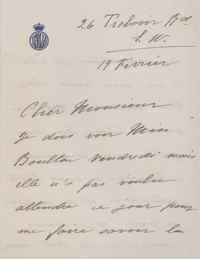 26 Trebovir Rd
S. W.
19 Février
Cher Monsieur
Je dois voir Miss
Boulton vendredi mais
elle n'a pas voulu
attendre ce jour pour
me faire savoir la